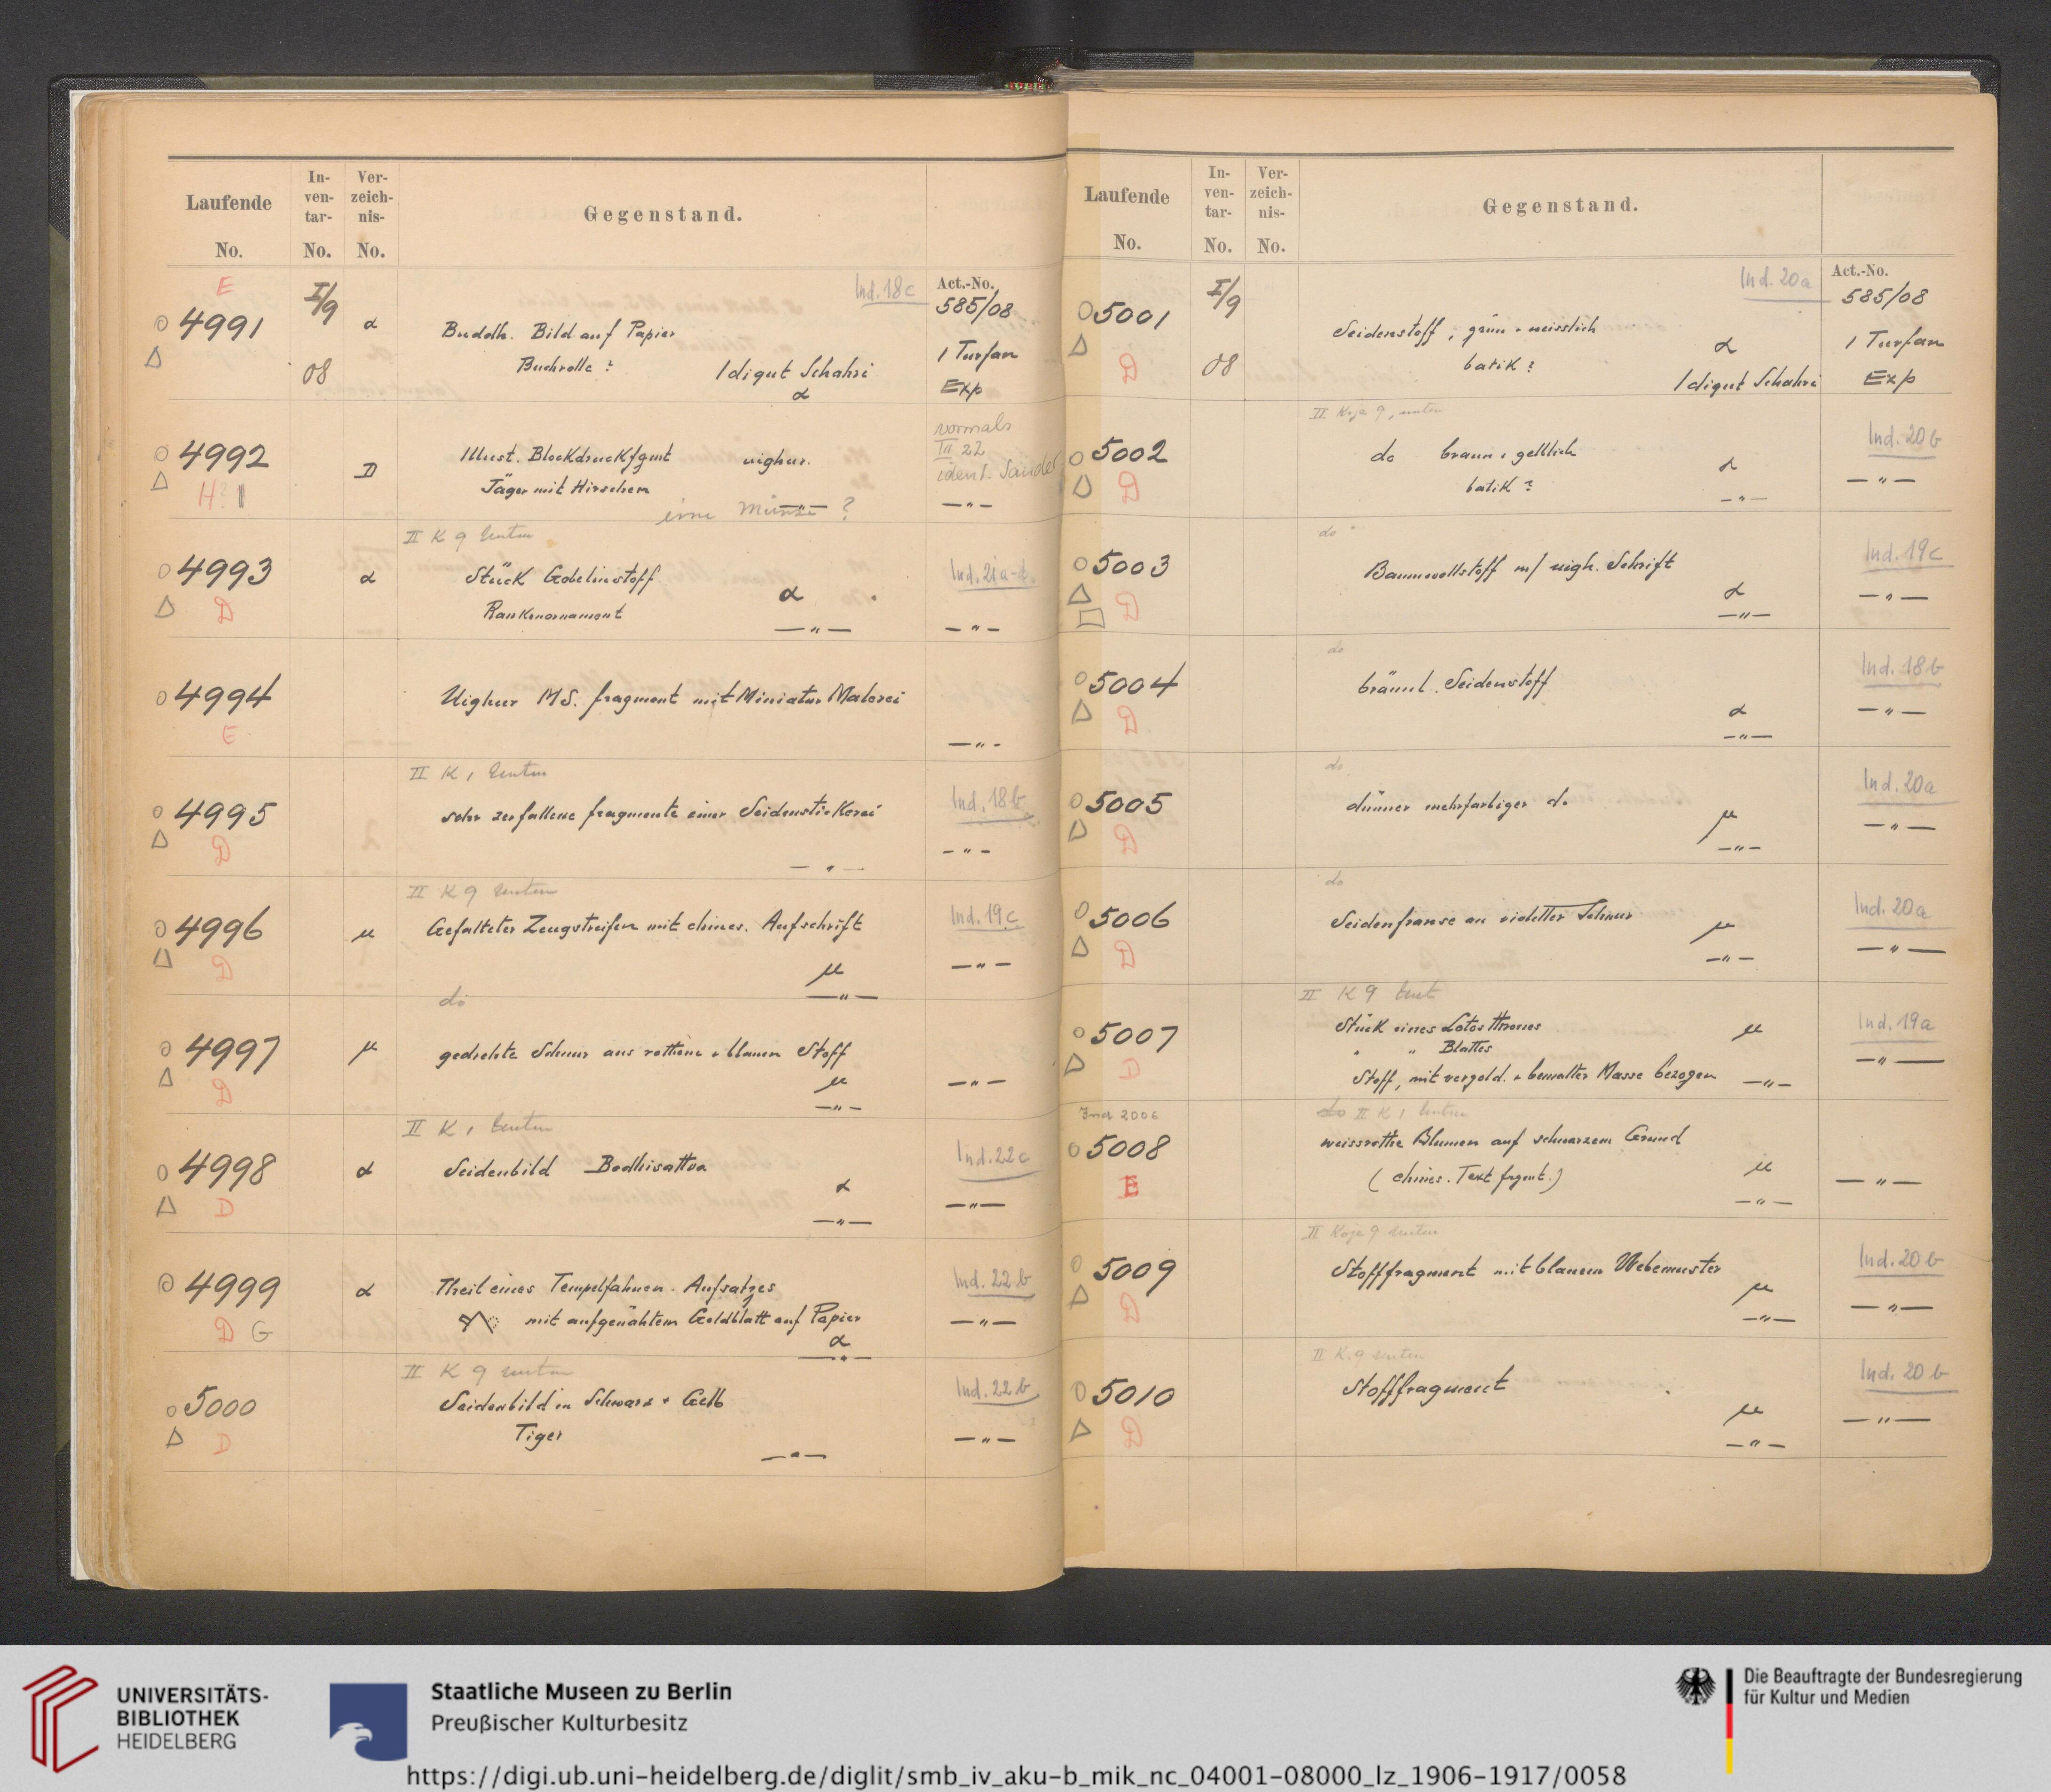 Laufende
No.
In-
ven-
tar-
No.
Ver-
zeich-
nis-
No.
Gegenstand.
E
4991
I/9
08
α
Ind. 18c
Buddh. Bild auf Papier
Buchrolle ?
Idigut Schahri
α
Act.-No.
585/08
1 Turfan
Exp
4992
H ?
D
Illust. Blockdruckfgmt uighur.
Jäger mit Hirschen
eine Münze ?
vormals
III 22
ident.
— " —
II K 9 unten
4993
D
α
Stück Gobelinstoff
α
Rankenornament
— " —
Ind. 21a
— " —
4994
E
Uighur MS. fragment mit Miniatur Malerei
— " —
II K 1 unten
4995
D
sehr zerfallene fragmente einer Seidenstickerei
— " —
Ind. 18b
— " —
II K 9 unten
4996
D
μ
Gefalteter Zeugstreifen mit chines. Aufschrift
μ
— " —
Ind. 19c
— " —
do
4997
D
μ
gedrehte Schnur aus rothem + blauem Stoff
μ
— " —
— " —
II K 1 unten
4998
D
α
Seidenbild Bodhisattva
α
— " —
Ind. 22c
— " —
4999
D G
α
Theil eines Tempelfahnen-Aufsatzes
mit aufgenähtem Goldblatt auf Papier
α
— " —
Ind. 22b
— " —
II K 9 unten
5000
D
Seidenbild in Schwarz + Gelb
Tiger
— " —
Ind. 22b
— " —
Laufende
No.
In-
ven-
tar-
No.
Ver-
zeich-
nis-
No.
Gegenstand.
5001
D
I/9
08
Ind. 20a
Seidenstoff, grün + weisslich
α
batik ?
Idigut Schahri
Act.-No.
585/08
1 Turfan
Exp
II Koje 9, unten
5002
D
do braun + gelblich
α
batik ?
— " —
Ind. 20b
— " —
do
5003
D
Baumwollstoff m/ uigh. Schrift
α
— " —
Ind. 19c
— " —
do
5004
D
bräunl. Seidenstoff
α
— " —
Ind. 18b
— " —
do
5005
D
dünner mehrfarbiger do
μ
— " —
Ind. 20a
— " —
do
5006
D
Seidenfranse an violetter Schnur
μ
— " —
Ind. 20a
— " —
II K 9 unt
5007
D
Stück eines Lotosthrones
μ
" " Blattes
Stoff, mit vergold. + bemalter Masse bezogen
— " —
Ind. 19a
— " —
do II K 1 unten
2006
5008
E
weissrothe Blumen auf schwarzem Grund
(chines. Text frgmt.)
μ
— " —
— " —
II Koje 9 unten
5009
D
Stofffragment mit blauem Webemuster
μ
— " —
Ind. 20b
— " —
II K. 9 unten
5010
D
Stofffragment
μ
— " —
Ind. 20b
— " —
UNIVERSITÄTS-
BIBLIOTHEK
HEIDELBERG
Staatliche Museen zu Berlin
Preußischer Kulturbesitz
Die Beauftragte der Bundesregierung
für Kultur und Medien
https://digi.ub.uni-heidelberg.de/diglit/smb_iv_aku-b_mik_nc_04001-08000_lz_1906-1917/0058